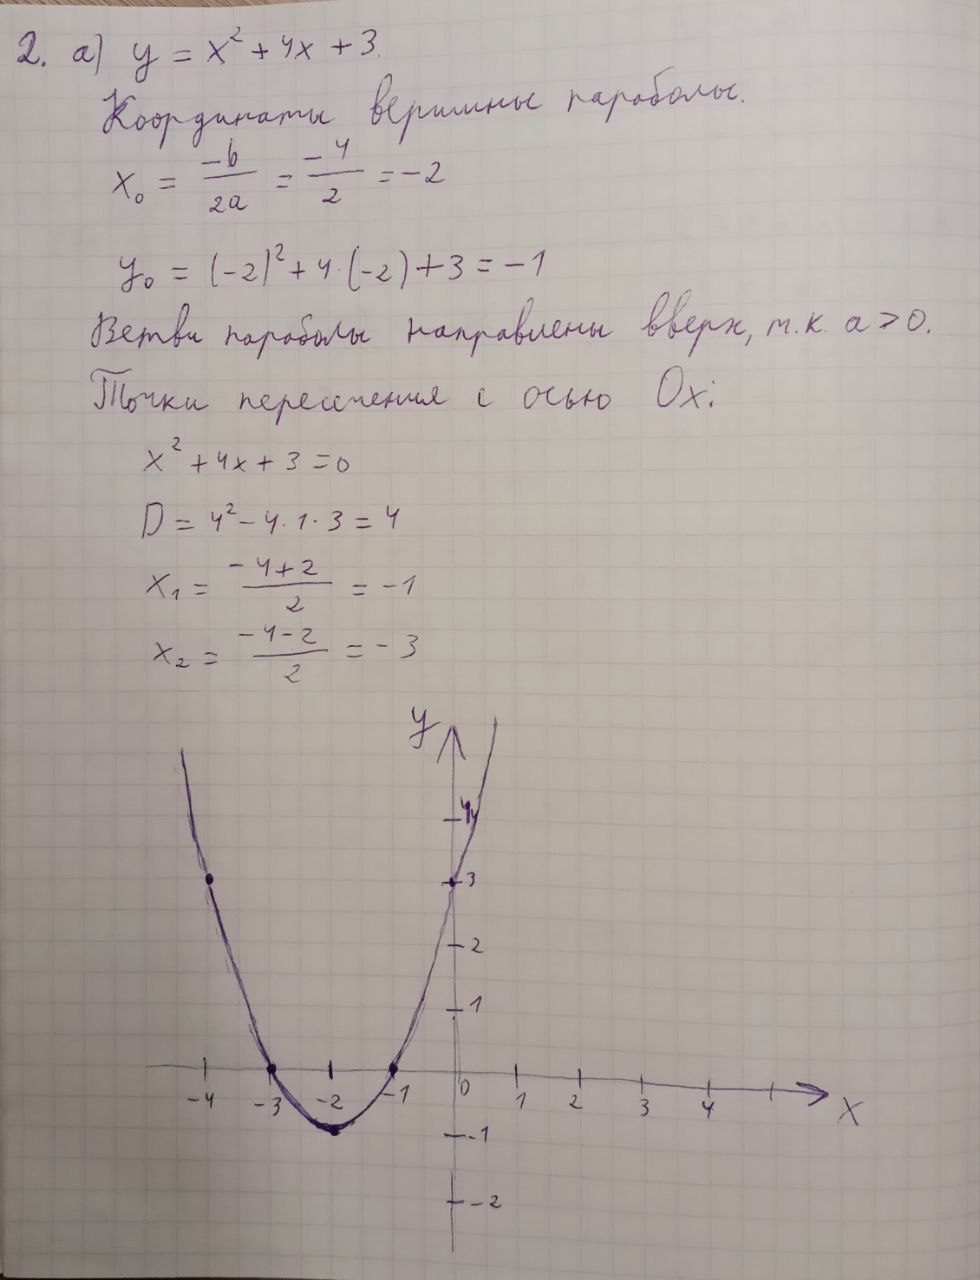 2. а) y = x² + 4x + 3.
Координаты вершины параболы.
x₀ = -b/2a = -4/2 = -2
y₀ = (-2)² + 4·(-2) + 3 = -1
Ветви параболы направлены вверх, т.к. a > 0.
Точки пересечения с осью Ox:
x² + 4x + 3 = 0
D = 4² - 4·1·3 = 4
x₁ = -4+2/2 = -1
x₂ = -4-2/2 = -3
y
4
3
2
1
-4 -3 -2 -1 0 1 2 3 4 x
-1
-2